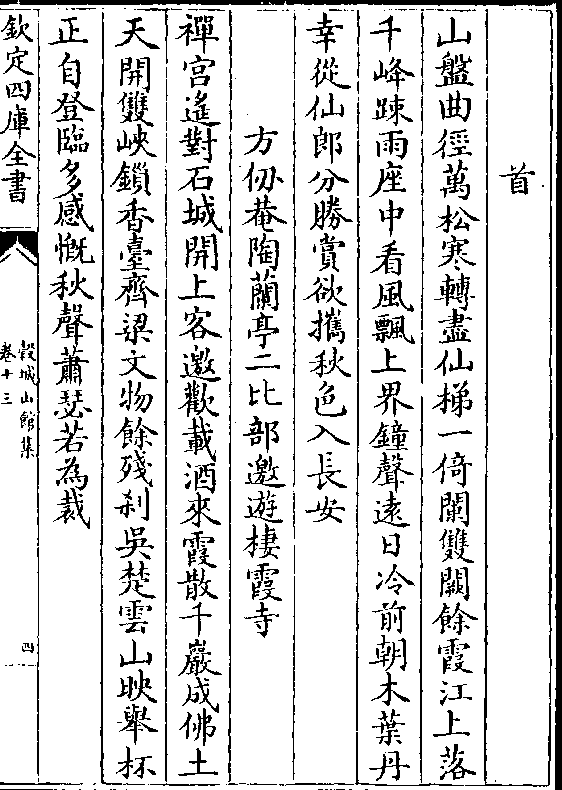 首
山盤曲徑萬松寒轉盡仙梯一倚闌雙闕餘霞江上落
千峰踈雨座中看風飄上界鐘聲遠日冷前朝木葉丹
幸從仙郎分勝賞欲攜秋色入長安
方仞菴陶蘭亭二比部邀遊棲霞寺
禪宮遙對石城開上客邀歡載酒來霞散千巖成佛土
天開雙峽鎖香臺齊梁文物餘殘刹吳楚雲山映舉杯
正自登臨多感慨秋聲蕭瑟若為裁
欽定四庫全書
穀城山館集
卷十三
四